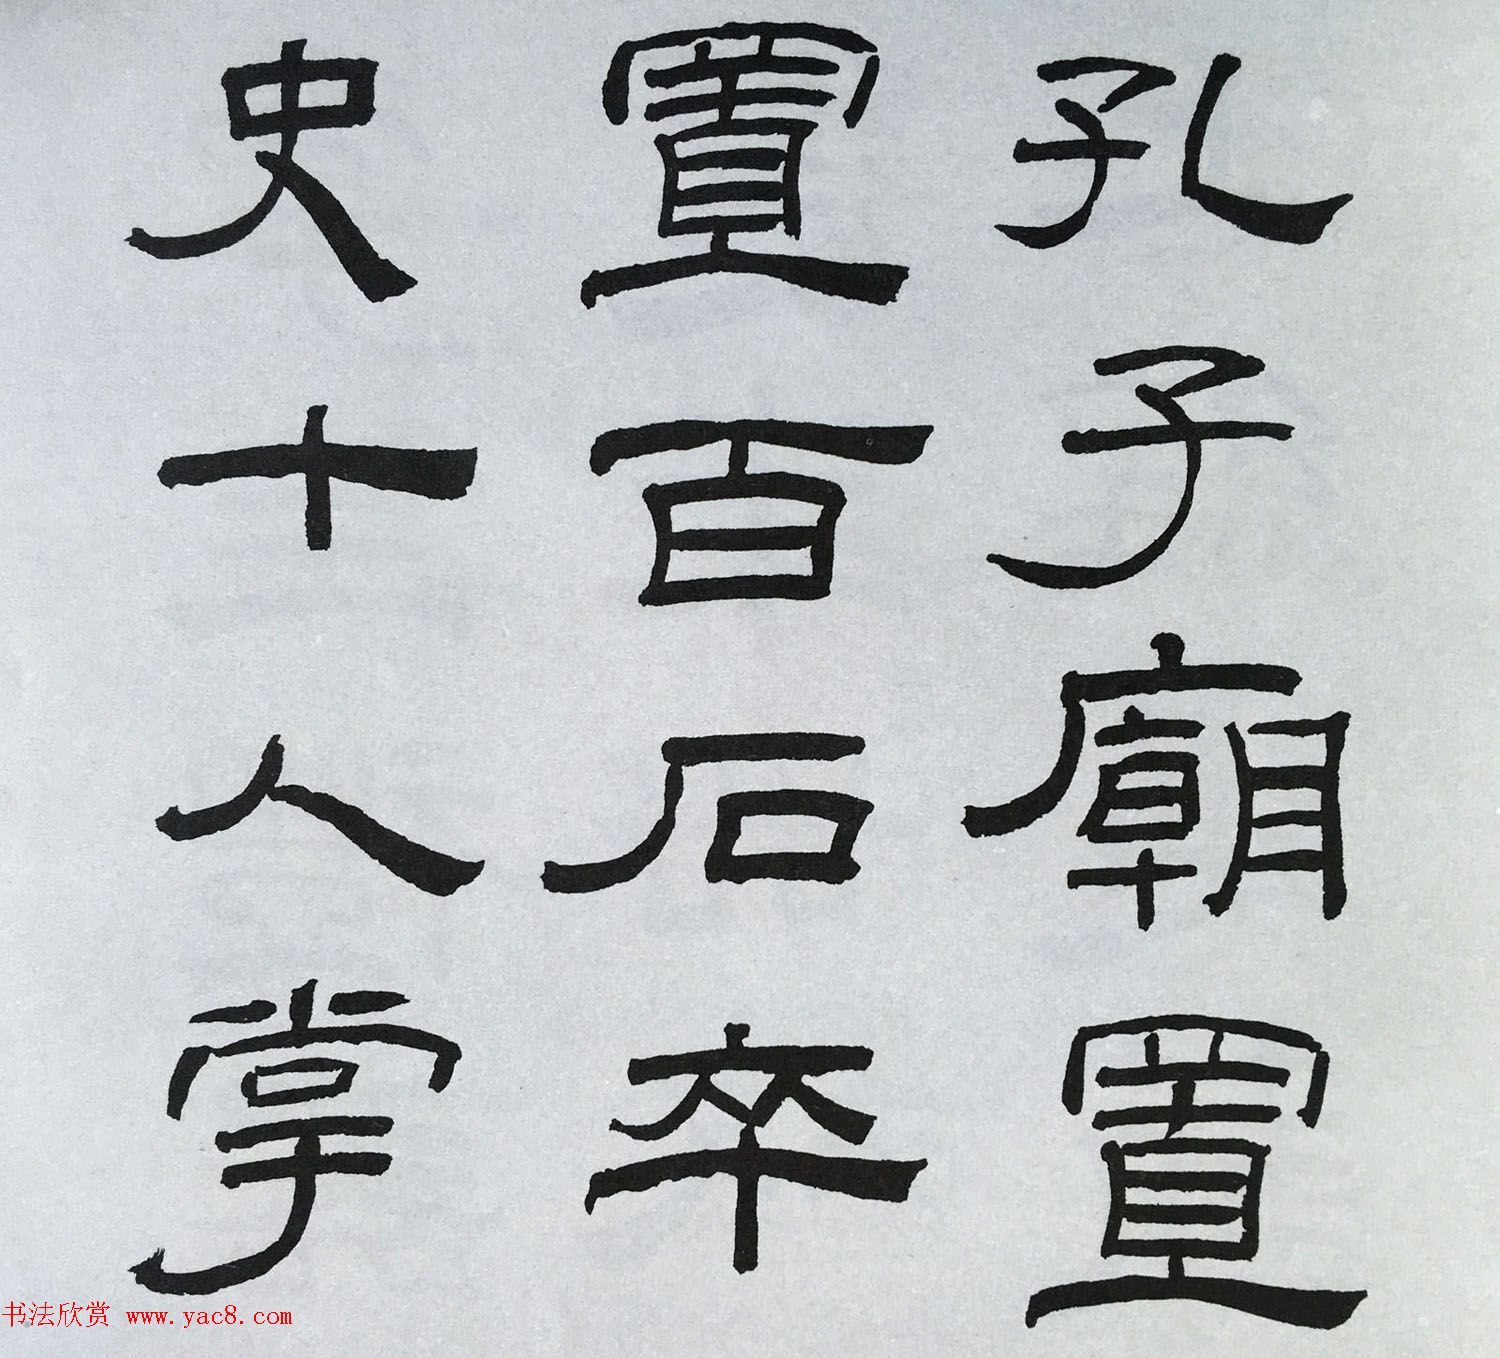 孔子廟置
置百石卒
史十人掌
书法欣赏 www.yac8.com